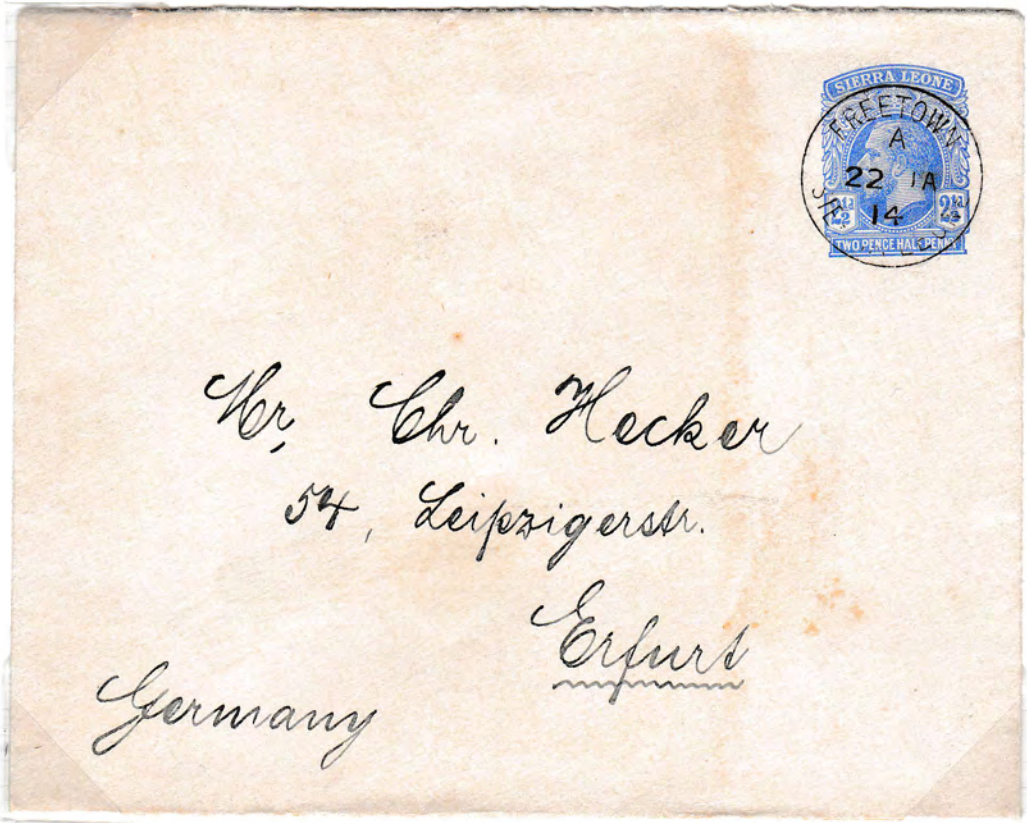 SIERRA LEONE
FREETOWN
A
22 JA
14
2½d 2½d
TWO PENCE HALF PENNY
Mr, Chr. Hecker
54, Leipzigerstr.
Erfurt
Germany